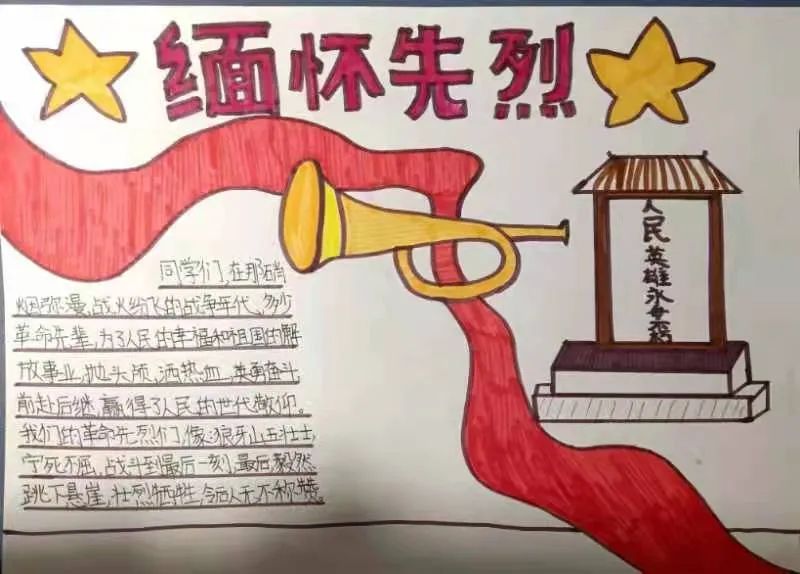 缅怀先烈
人民英雄永垂不朽
同学们,在那硝
烟弥漫,战火纷飞的战争年代,多少
革命先辈,为了人民的幸福和祖国的解
放事业,抛头颅,洒热血,英勇奋斗,
前赴后继,赢得了人民的世代敬仰。
我们的革命先烈们,像狼牙山五壮士,
宁死不屈,战斗到最后一刻,最后毅然
跳下悬崖,壮烈牺牲,令后人无不称赞。